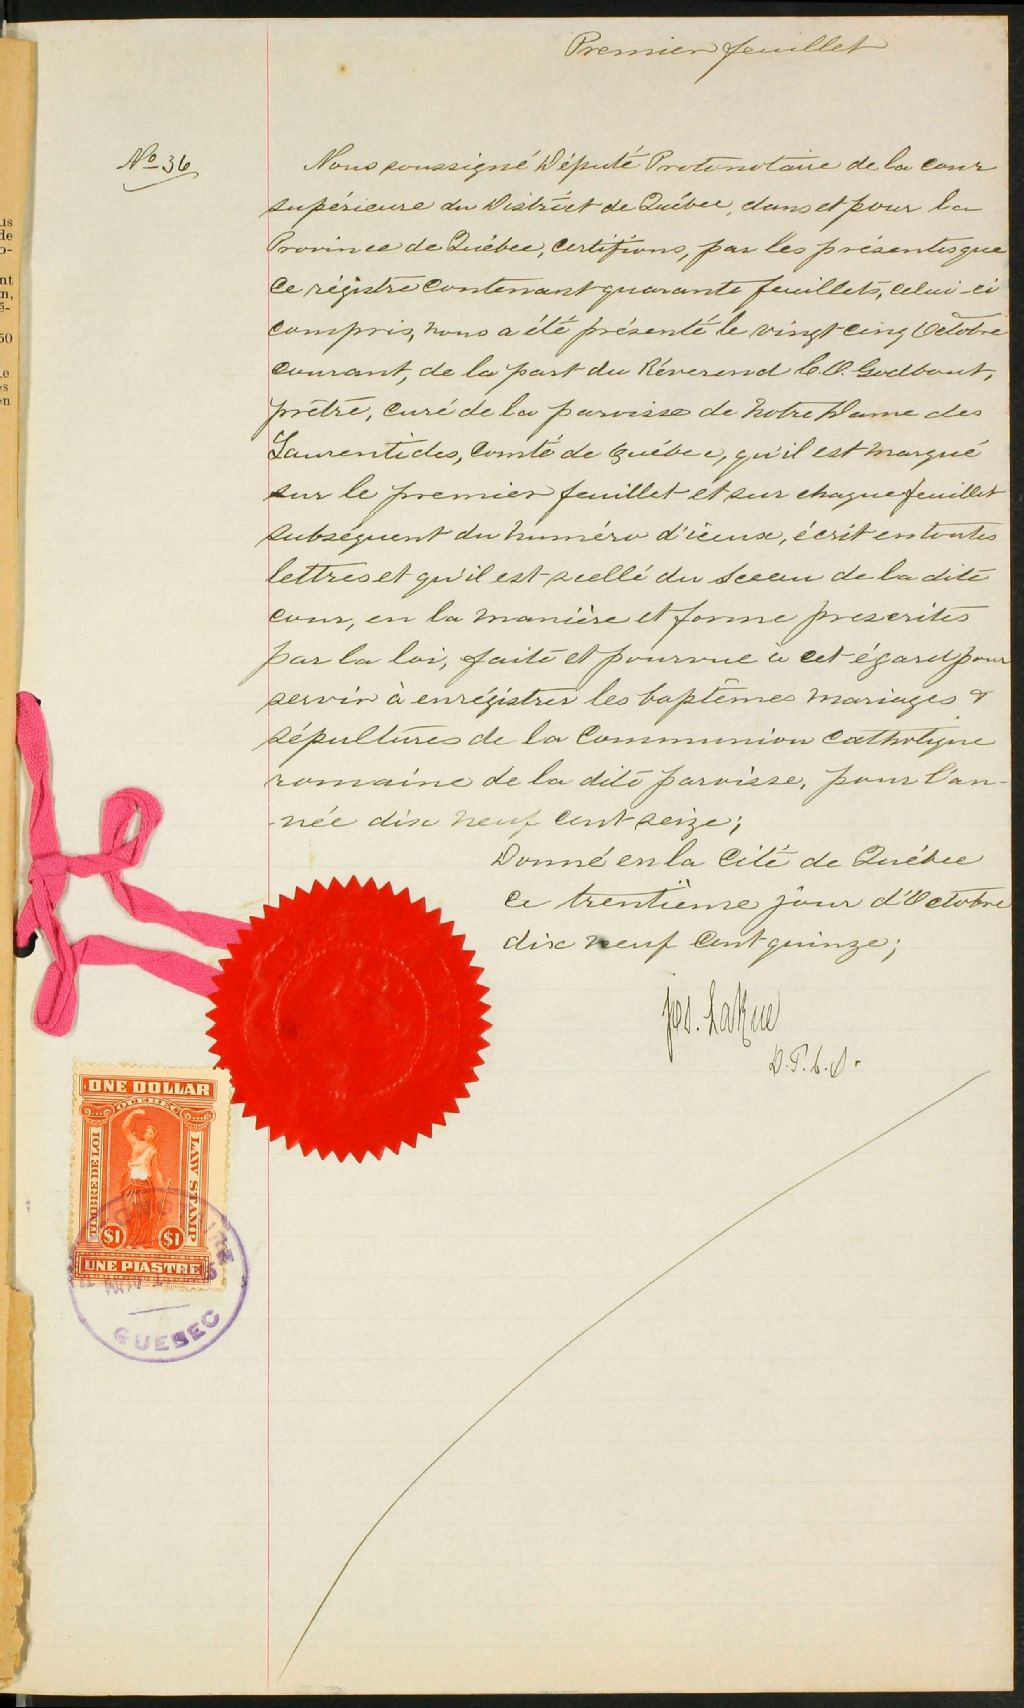 Premier feuillet
No 36
Nous soussigné Député Protonotaire de la cour
supérieure du District de Québec, dans et pour la
Province de Québec, certifions, par les présentes que
ce régistre contenant quarante feuillets, celui-ci
compris, nous a été présenté le vingt cinq Octobre
courant, de la part du Réverend C. O. Godbout,
prêtre, curé de la paroisse de Notre Dame des
Laurentides, Comté de Québec, qu'il est marqué
sur le premier feuillet et sur chaque feuillet
subséquent du numéro d'iceux, écrit en toutes
lettres et qu'il est scellé du Sceau de la dite
cour, en la manière et forme prescrites
par la loi, faite et pourvue à cet égard pour
servir à enrégistrer les baptêmes mariages &
sépultures de la Communion Catholique
romaine de la dite paroisse, pour l'an-
-née dix neuf cent seize;
Donné en la Cité de Québec
ce trentième jour d'Octobre
dix neuf cent quinze;
Jos. LaRue
D. P. C. S.
ONE DOLLAR
QUEBEC
TIMBRE DE LOI
LAW STAMP
$1 $1
UNE PIASTRE
QUEBEC
us
de
o-
nt
n,
é-
50
le
es
en